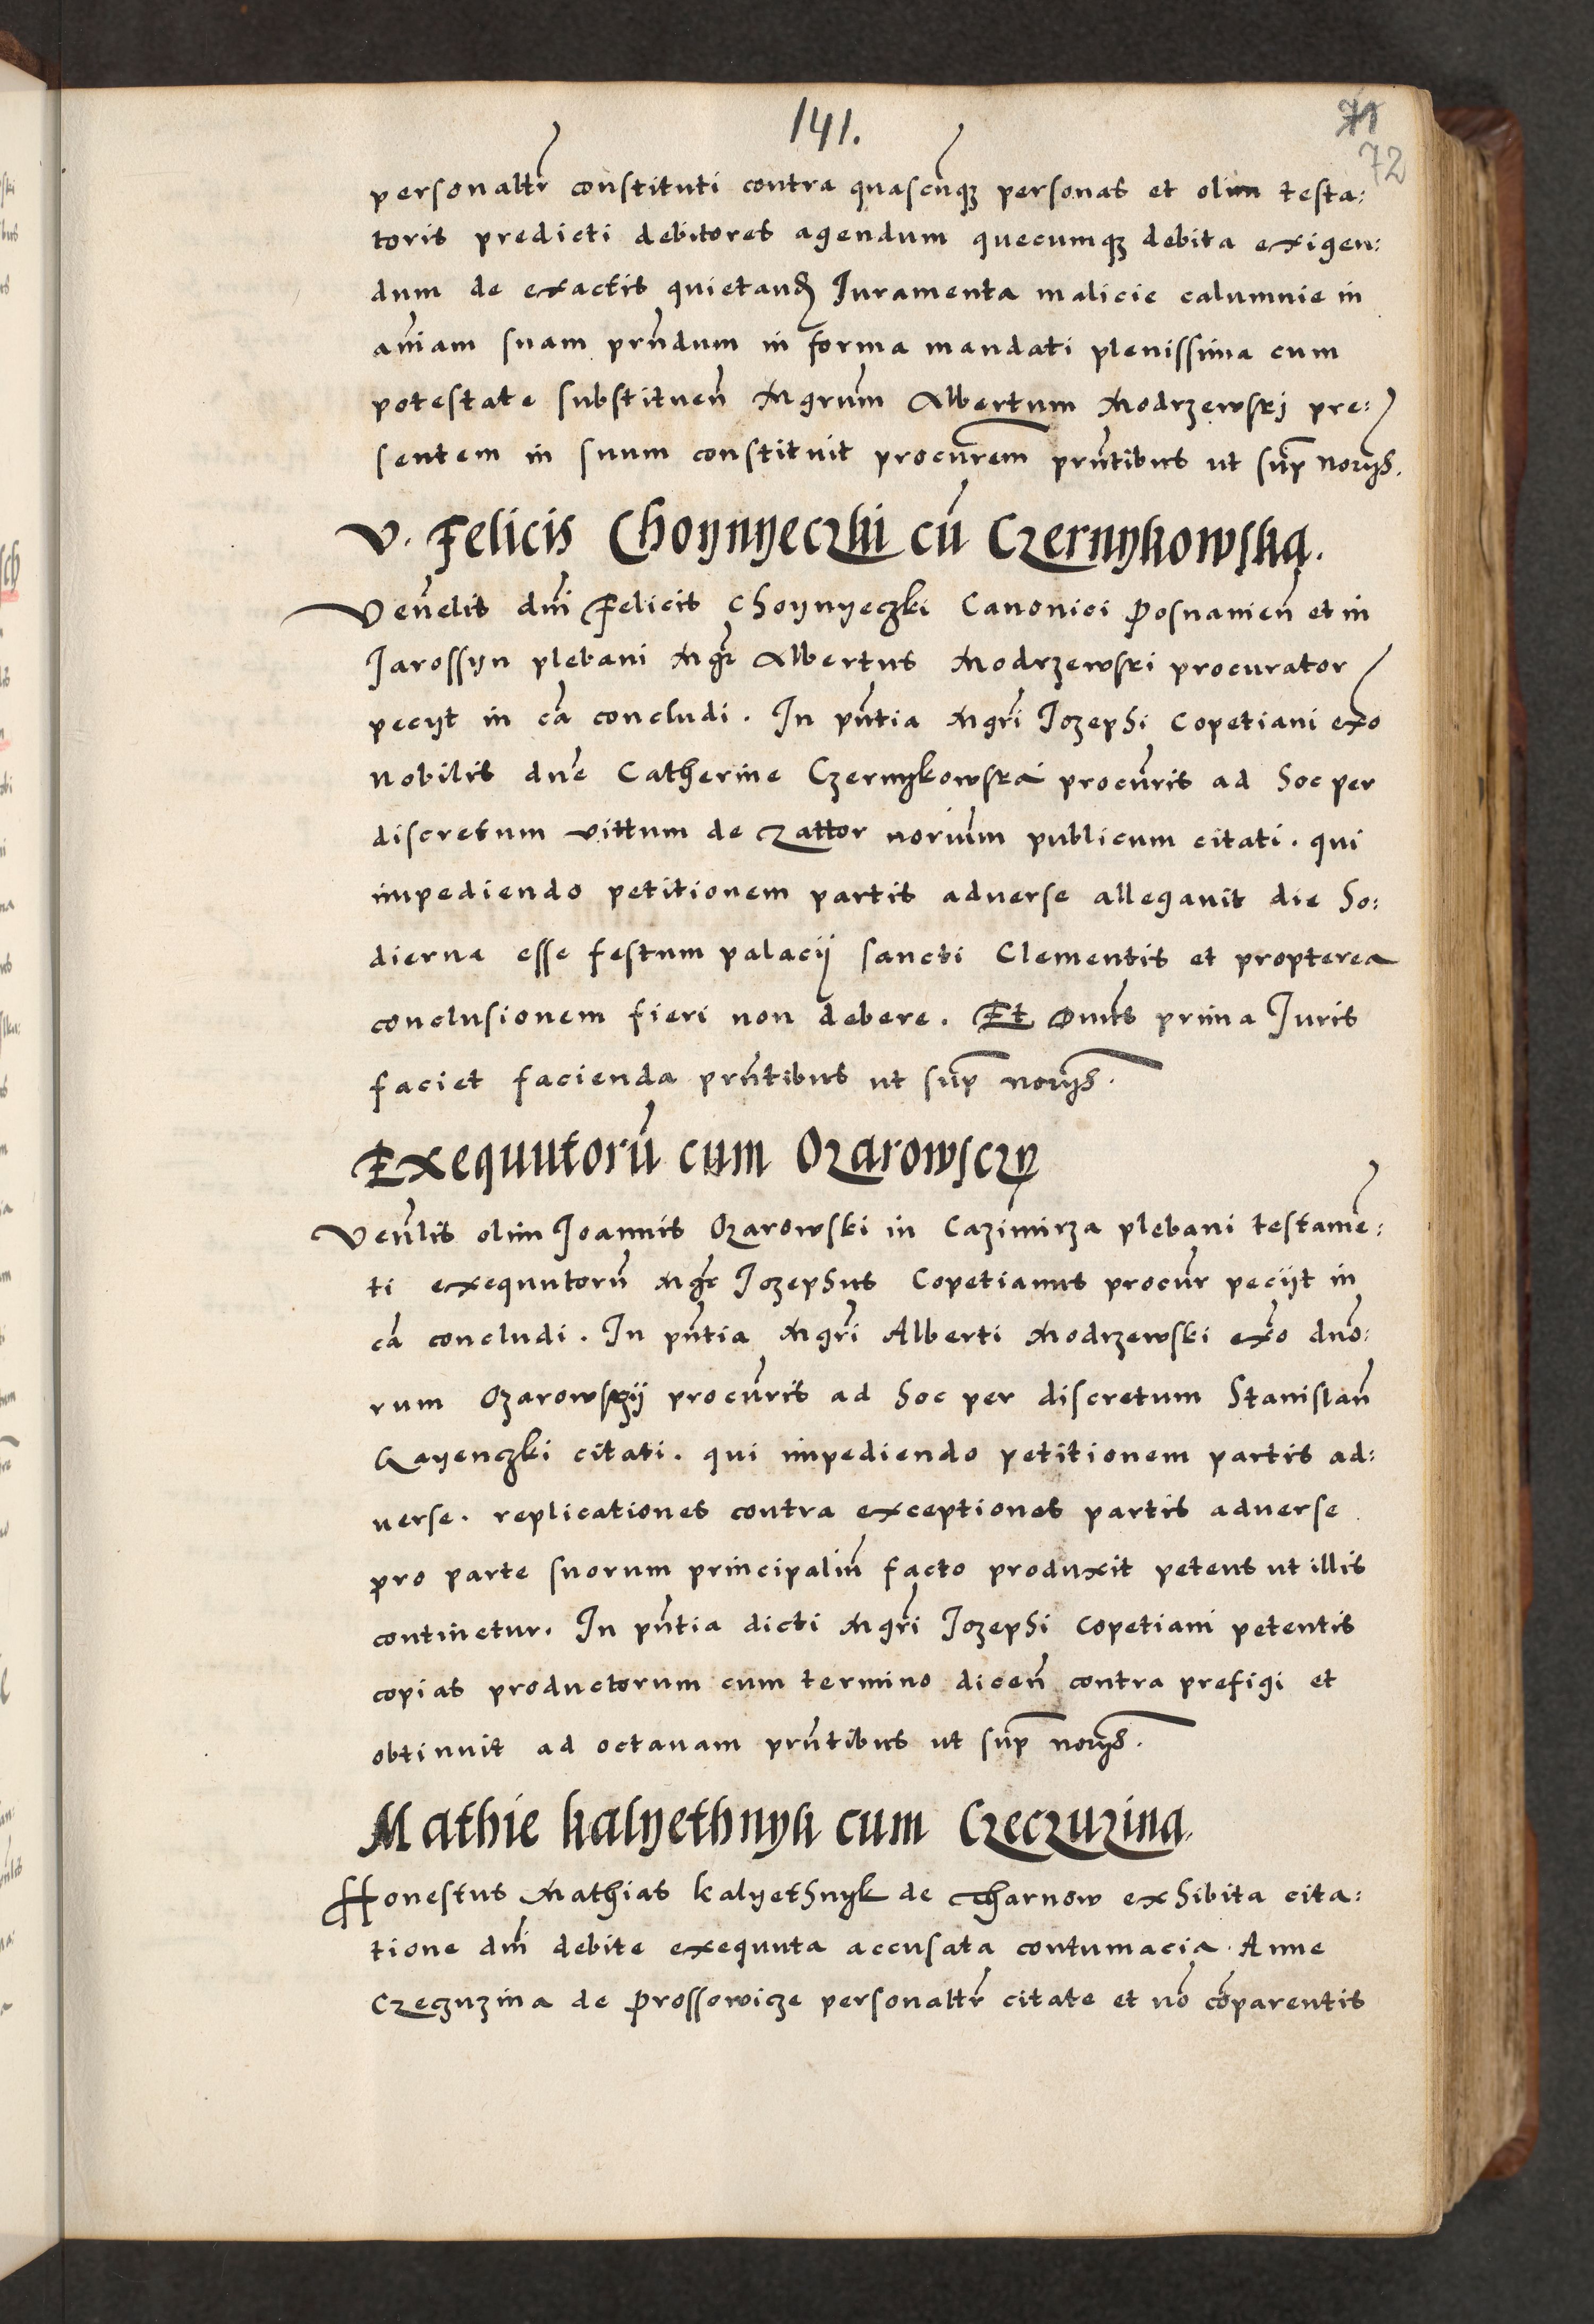 141.
71
72
personaltr̃ constituti contra quascũqȝ personas et olim testa:
toris predicti debitores agendum quecumqȝ debita exigen:
dum de exactis quietanđ Juramenta malicie calumnie in
am̃am suam prñdum in forma mandati plenissima cum
potestate substituen̄ Mgrum̃ Albertum Modrzewskj pre:
sentem in suum constituit procurem̃ prñtibus ut sup̃ noriis̃.
V. Felicis Choynyeczki cũ Czernykowska.
Veñelis dnĩ Felicis Choynyeczki Canonici Posnanien̄ et in
Jarossyn plebani Mgr̃ Albertus Modrzewski procurator
peciit in cã concludi. In pñtia Mgrĩ Jozephi Copetiani exo
Nobilis dnẽ Catherine Czernykowska procur̃is ad hoc per
discretum vittum de Zattor noriũm publicum citati. qui
impediendo petitionem partis aduerse allegauit die ho:
dierna esse festum palacij sancti Clementis et propterea
conclusionem fieri non debere. Et Dnũs prima Juris
faciet facienda prñtibus ut sup̃ noriis̃.
Exequutorũ cum Ozarowsczy
Veñlis olim Joannis Ozarowski in Cazimirza plebani testamẽ:
ti exequutorũ Mgr̃ Jozephus Copetianus procur̃ peciit in
cã concludi. In pñtia Mgrĩ Alberti Modrzewski exõ dnõ:
rum Ozarowsczij procur̃is ad hoc per discretum Stanislaũ
Gayenczki citati. qui impediendo petitionem partis ad:
uerse. replicationes contra exceptiones partis aduerse
pro parte suorum principaliũ facto produxit petens ut illis
continetur. In pñtia dicti Mgrĩ Jozephi Copetiani petentis
copias productorum cum termino dicen̄ contra prefigi et
obtinuit ad octauam prñtibus ut sup̃ noriis̃.
Mathie kalyethnyk cum Czeczuzina.
Honestus Mathias kalyethnyk de Tharnow exhibita cita:
tione dnĩ debite exequuta accusata contumacia. Anne
Czeczuzina de Prossowicze personaltr̃ citate et nõ cõparentis